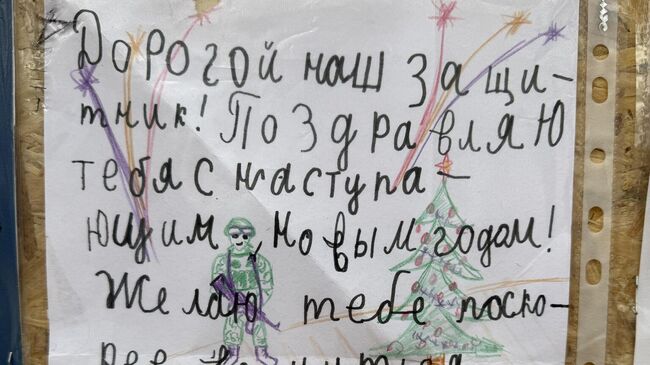 Дорогой наш защи-
тник! Поздравляю
тебя с наступа-
ющим новым годом!
Желаю тебе поско-
рее